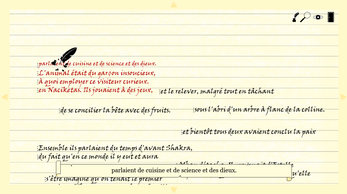 parlaient de cuisine et de science et des dieux.
L'animal était du garçon insoucieux,
À quoi employer ce visiteur curieux.
en Naciketai. Ils jouaient à des jeux,
et le relever, malgré tout en tâchant
de se concilier la bête avec des fruits,
sous l'abri d'un arbre à flanc de la colline.
et bientôt tous deux avaient conclu la paix
Ensemble ils parlaient du temps d'avant Shakra,
du fait qu'en ce monde il y eut et aura
parlaient de cuisine et de science et des dieux.
s'être imaginé qu'on tenait le premier
qu'elle